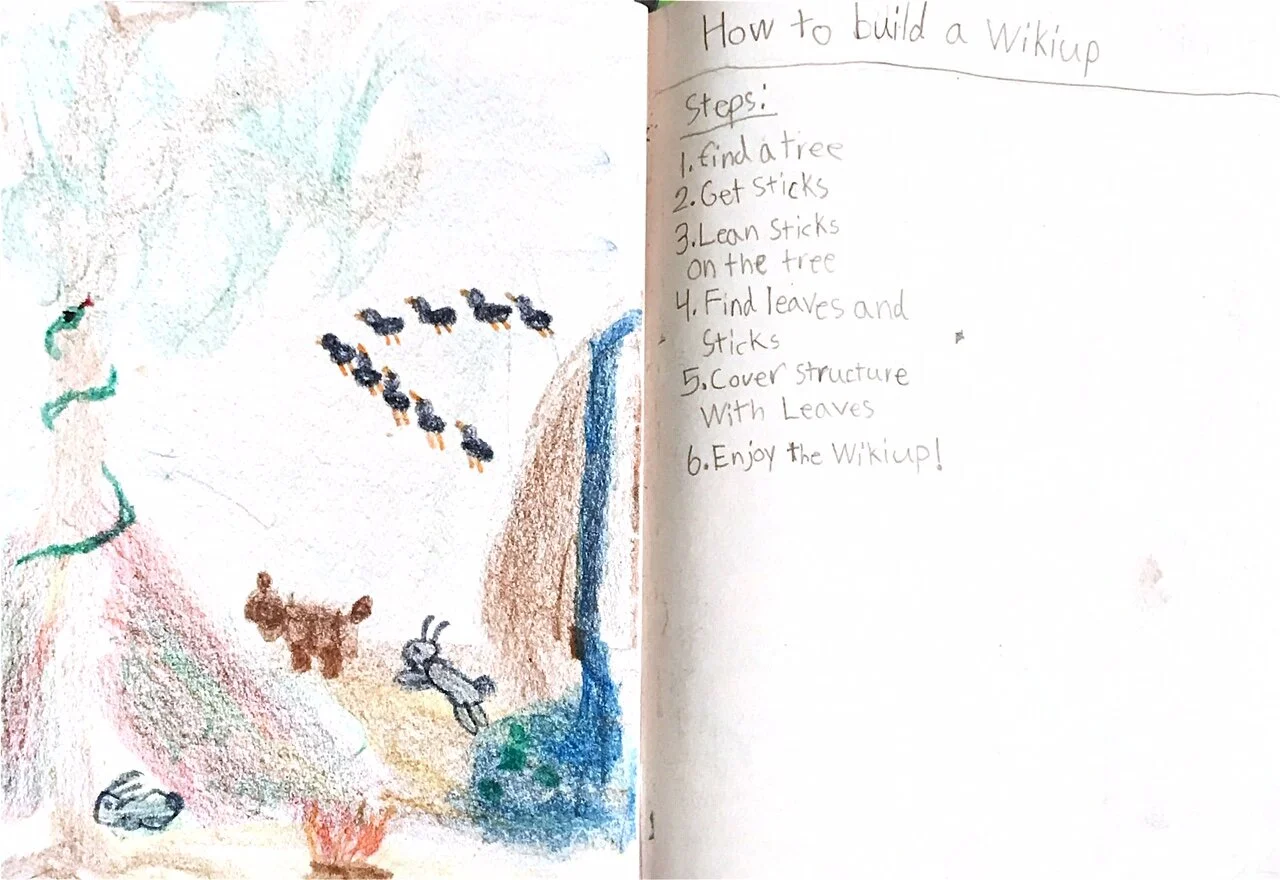 How to build a Wikiup
Steps:
1. find a tree
2. Get sticks
3. Lean Sticks
on the tree
4. Find leaves and
Sticks
5. Cover structure
With Leaves
6. Enjoy the Wikiup!